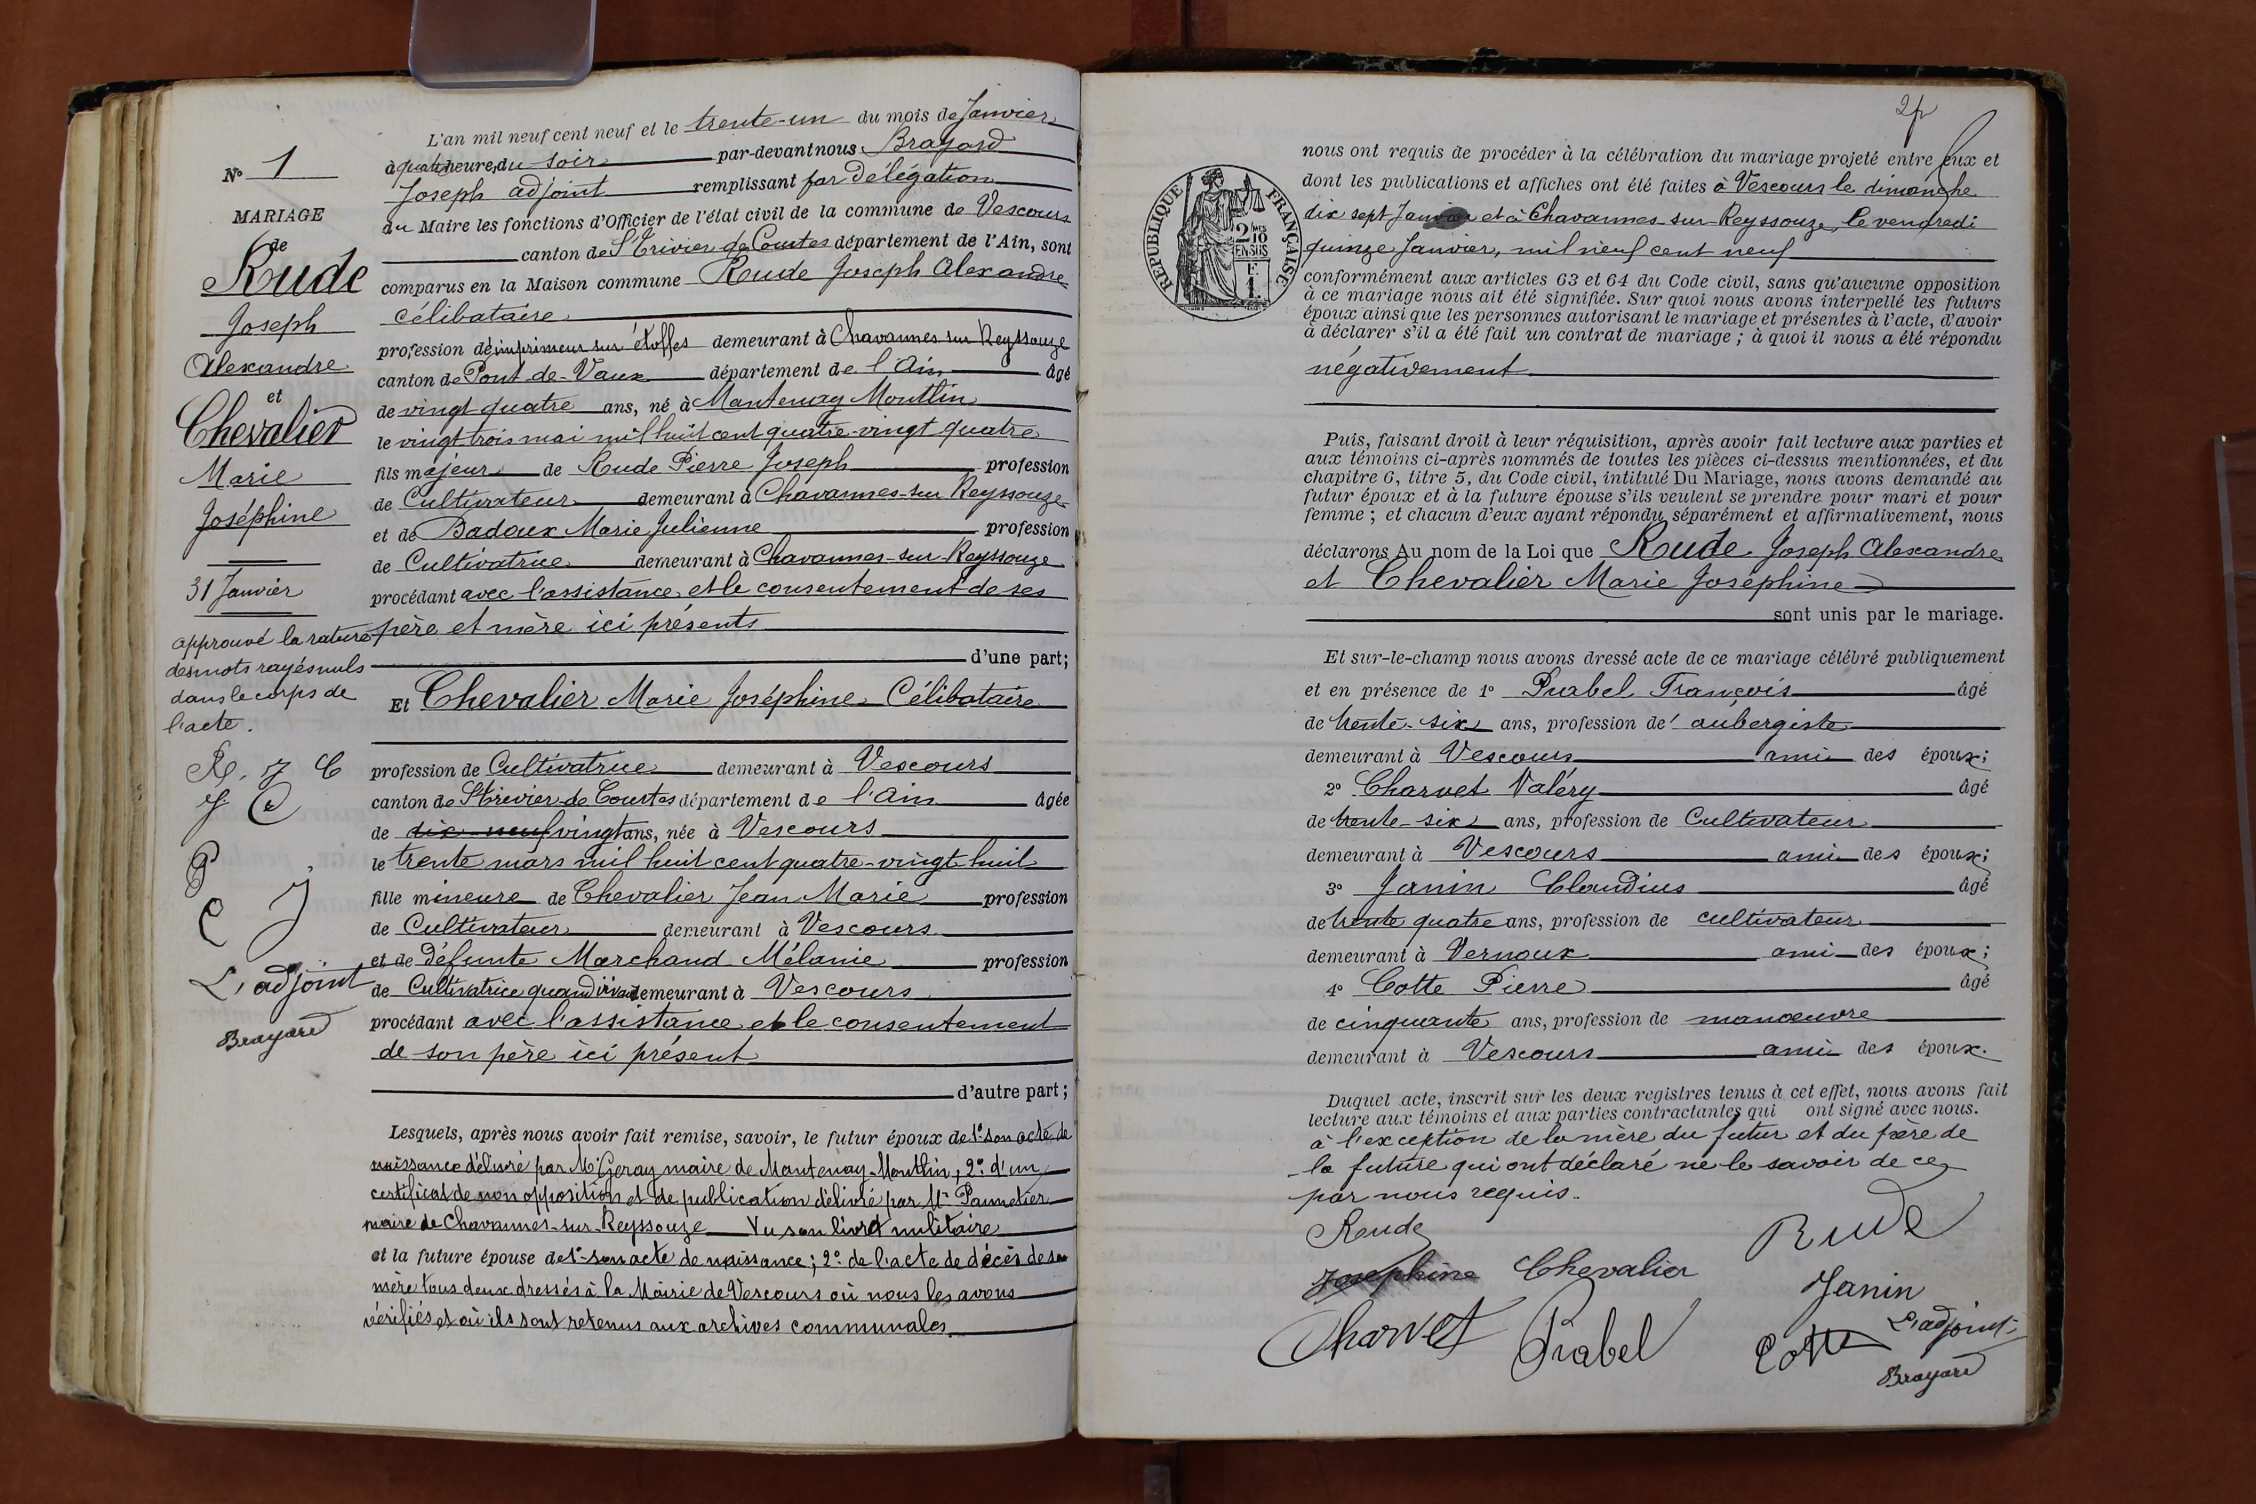 L'an mil neuf cent neuf et le trente-un du mois de Janvier
à quatre heure, du soir par-devant nous Brayard
Joseph adjoint remplissant par Délégation
du Maire les fonctions d'Officier de l'état civil de la commune de Vescours
canton de St Trivier de Courtes département de l'Ain, sont
comparus en la Maison commune Rude Joseph Alexandre
célibataire
profession d'imprimeur sur étoffes demeurant à Chavannes sur Reyssouze
canton de Pont-de-Vaux département de l'Ain âgé
de vingt quatre ans, né à Mantenay Montlin
le vingt trois mai mil huit cent quatre-vingt quatre
fils majeur de Rude Pierre Joseph profession
de Cultivateur demeurant à Chavannes-sur Reyssouze
et de Badoux Marie Julienne profession
de Cultivatrice demeurant à Chavannes-sur-Reyssouze
procédant avec l'assistance et le consentement de ses
père et mère ici présents
d'une part;
Et Chevalier Marie Joséphine Célibataire
profession de Cultivatrice demeurant à Vescours
canton de St Trivier de Courtes département de l'Ain âgée
de dix-neuf vingt ans, née à Vescours
le trente mars mil huit cent quatre-vingt huit
fille mineure de Chevalier Jean Marie profession
de Cultivateur demeurant à Vescours
et de défunte Marchand Mélanie profession
de Cultivatrice quand vivait demeurant à Vescours
procédant avec l'assistance et le consentement
de son père ici présent
d'autre part;
Lesquels, après nous avoir fait remise, savoir, le futur époux de 1° son acte de
naissance délivré par Mr Geray maire de Mantenay-Montlin; 2° d'un
certificat de non opposition et de publication délivré par Mr Pannetier
maire de Chavannes-sur-Reyssouze Vu son livret militaire
et la future épouse de 1° son acte de naissance; 2° de l'acte de décès de sa
mère tous deux dressés à la Mairie de Vescours où nous les avons
vérifiés et où ils sont retenus aux archives communales
N° 1
MARIAGE
de
Rude
Joseph
Alexandre
et
Chevalier
Marie
Joséphine
31 Janvier
approuvé la rature
des mots rayés nuls
dans le corps de
l'acte.
R. J C
J C
P
C J
L'adjoint
Brayard
2
REPUBLIQUE FRANÇAISE
2 10
EN SUS
E.
1.
nous ont requis de procéder à la célébration du mariage projeté entre eux et
dont les publications et affiches ont été faites à Vescours le dimanche
dix sept Janvier et à Chavannes-sur-Reyssouze, le vendredi
quinze Janvier, mil neuf cent neuf
conformément aux articles 63 et 64 du Code civil, sans qu'aucune opposition
à ce mariage nous ait été signifiée. Sur quoi nous avons interpellé les futurs
époux ainsi que les personnes autorisant le mariage et présentes à l'acte, d'avoir
à déclarer s'il a été fait un contrat de mariage; à quoi il nous a été répondu
négativement
Puis, faisant droit à leur réquisition, après avoir fait lecture aux parties et
aux témoins ci-après nommés de toutes les pièces ci-dessus mentionnées, et du
chapitre 6, titre 5, du Code civil, intitulé Du Mariage, nous avons demandé au
futur époux et à la future épouse s'ils veulent se prendre pour mari et pour
femme; et chacun d'eux ayant répondu séparément et affirmativement, nous
déclarons Au nom de la Loi que Rude Joseph Alexandre
et Chevalier Marie Joséphine
sont unis par le mariage.
Et sur-le-champ nous avons dressé acte de ce mariage célébré publiquement
et en présence de 1° Prabel François âgé
de trente-six ans, profession de aubergiste
demeurant à Vescours ami des époux;
2° Charvet Valéry âgé
de trente-six ans, profession de Cultivateur
demeurant à Vescours ami des époux;
3° Janin Claudius âgé
de trente quatre ans, profession de cultivateur
demeurant à Vernoux ami des époux;
4° Cotte Pierre âgé
de cinquante ans, profession de manoeuvre
demeurant à Vescours ami des époux.
Duquel acte, inscrit sur les deux registres tenus à cet effet, nous avons fait
lecture aux témoins et aux parties contractantes qui ont signé avec nous.
à l'exception de la mère du futur et du père de
la future qui ont déclaré ne le savoir de ce
par nous requis.
Rude Rude
Josephine Chevalier Janin
Charvet Prabel Cotte L'adjoint
Brayard